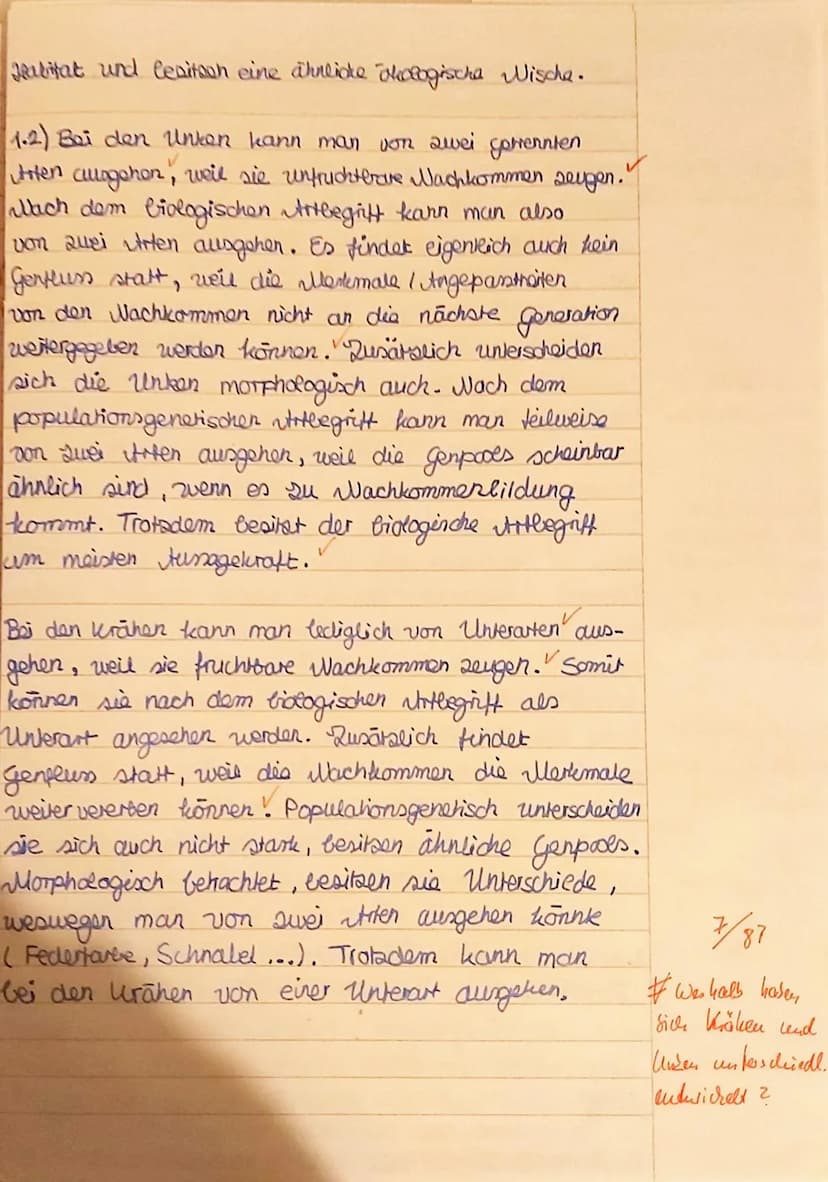 und besitzen eine ähnliche ökologische Nische.
1.2) Bei den Unken kann man von zwei getrennten
Arten ausgehen, weil sie unfruchtbare Nachkommen zeugen.
Nach dem biologischen Artbegriff kann man also
von zwei Arten ausgehen. Es findet eigentlich auch kein
Genfluss statt, weil die Merkmale / Angepasstheiten
von den Nachkommen nicht an die nächste Generation
weitergegeben werden können. Zusätzlich unterscheiden
sich die Unken morphologisch auch. Nach dem
populationsgenetischen Artbegriff kann man teilweise
von zwei Arten ausgehen, weil die Genpools scheinbar
ähnlich sind, wenn es zu Nachkommenbildung
kommt. Trotzdem besitzt der biologische Artbegriff
am meisten Aussagekraft.
Bei den Krähen kann man lediglich von Unterarten aus-
gehen, weil sie fruchtbare Nachkommen zeugen. Somit
können sie nach dem biologischen Artbegriff als
Unterart angesehen werden. Zusätzlich findet
Genfluss statt, weil die Nachkommen die Merkmale
weiter vererben können. Populationsgenetisch unterscheiden
sie sich auch nicht stark, besitzen ähnliche Genpools.
Morphologisch betrachtet, besitzen sie Unterschiede,
weswegen man von zwei Arten ausgehen könnte
(Federfarbe, Schnabel ...). Trotzdem kann man
bei den Krähen von einer Unterart ausgehen.
7/87
# Weshalb haben
sich Krähen und
Unken unterschiedl.
entwickelt?